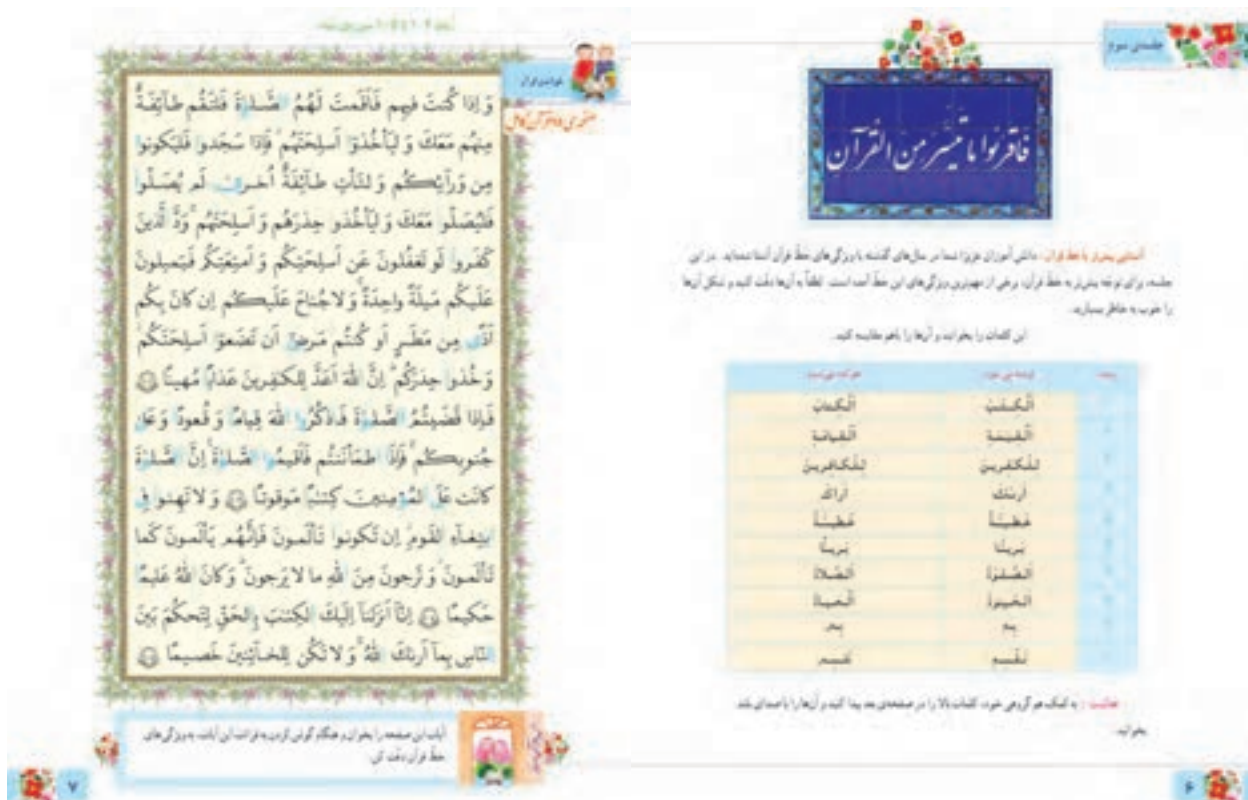 جلسه‌ی سوم
فاقرءوا ما تیسر من القرآن
آشنایی بیش‌تر با خط قرآن : دانش‌آموزان عزیز! شما در سال‌های گذشته با ویژگی‌های خطّ قرآن آشنا شده‌اید. در این
جلسه، برای توجّه بیش‌تر به خطّ قرآن، برخی از مهم‌ترین ویژگی‌های این خطّ آمده است. لطفاً به آن‌ها دقّت کنید و شکل آن‌ها
را خوب به خاطر بسپارید.
این کلمات را بخوانید و آن‌ها را باهم مقایسه کنید.
اَلْکِتٰبَ اَلْکِتابَ
لِلْکٰفِرینَ لِلْکافِرینَ
اَرٰىکَ اَراکَ
فعّالیت : به کمک هم‌گروهی خود، کلمات بالا را در صفحه‌ی بعد پیدا کنید و آن‌ها را با صدای بلند
بخوانید.
۶
وَ اِذا کُنتَ فیهِم فَاَقَمتَ لَهُمُ الصَّلوٰةَ فَلتَقُم طآئِفَةٌ
مِنهُم مَعَکَ وَ لیَأخُذوٓا اَسلِحَتَهُم فَاِذا سَجَدوا فَلیَکونوا
مِن وَرآئِکُم وَ لتَأتِ طآئِفَةٌ اُخرىٰ لَم یُصَلّوا
فَلیُصَلّوا مَعَکَ وَ لیَأخُذوا حِذرَهُم وَ اَسلِحَتَهُم وَدَّ الَّذینَ
کَفَروا لَو تَغفُلونَ عَن اَسلِحَتِکُم وَ اَمتِعَتِکُم فَیَمیلونَ
عَلَیکُم مَیلَةً واحِدَةً وَ لا جُناحَ عَلَیکُم اِن کانَ بِکُم
اَذًى مِن مَطَرٍ اَو کُنتُم مَرضىٰٓ اَن تَضَعوٓا اَسلِحَتَکُم
وَ خُذوا حِذرَکُم اِنَّ اللّٰهَ اَعَدَّ لِلکٰفِرینَ عَذابًا مُهینًا
فَاِذا قَضَیتُمُ الصَّلوٰةَ فَاذکُرُوا اللّٰهَ قِیامًا وَ قُعودًا وَ عَلىٰ
جُنوبِکُم فَاِذَا اطمَأنَنتُم فَاَقیمُوا الصَّلوٰةَ اِنَّ الصَّلوٰةَ
کانَت عَلَى المُؤمِنینَ کِتٰبًا مَوقوتًا وَ لا تَهِنوا فِى
ابتِغآءِ القَومِ اِن تَکونوا تَألَمونَ فَاِنَّهُم یَألَمونَ کَما
تَألَمونَ وَ تَرجونَ مِنَ اللّٰهِ ما لا یَرجونَ وَ کانَ اللّٰهُ عَلیمًا
حَکیمًا اِنّآ اَنزَلنآ اِلَیکَ الکِتٰبَ بِالحَقِّ لِتَحکُمَ بَینَ
النّاسِ بِمآ اَرٰىکَ اللّٰهُ وَ لا تَکُن لِلخآئِنینَ خَصیمًا
آیات این صفحه را بخوان و هنگام گوش کردن به قرائت این آیات، به ویژگی‌های
خطّ قرآن دقّت کن.
۷